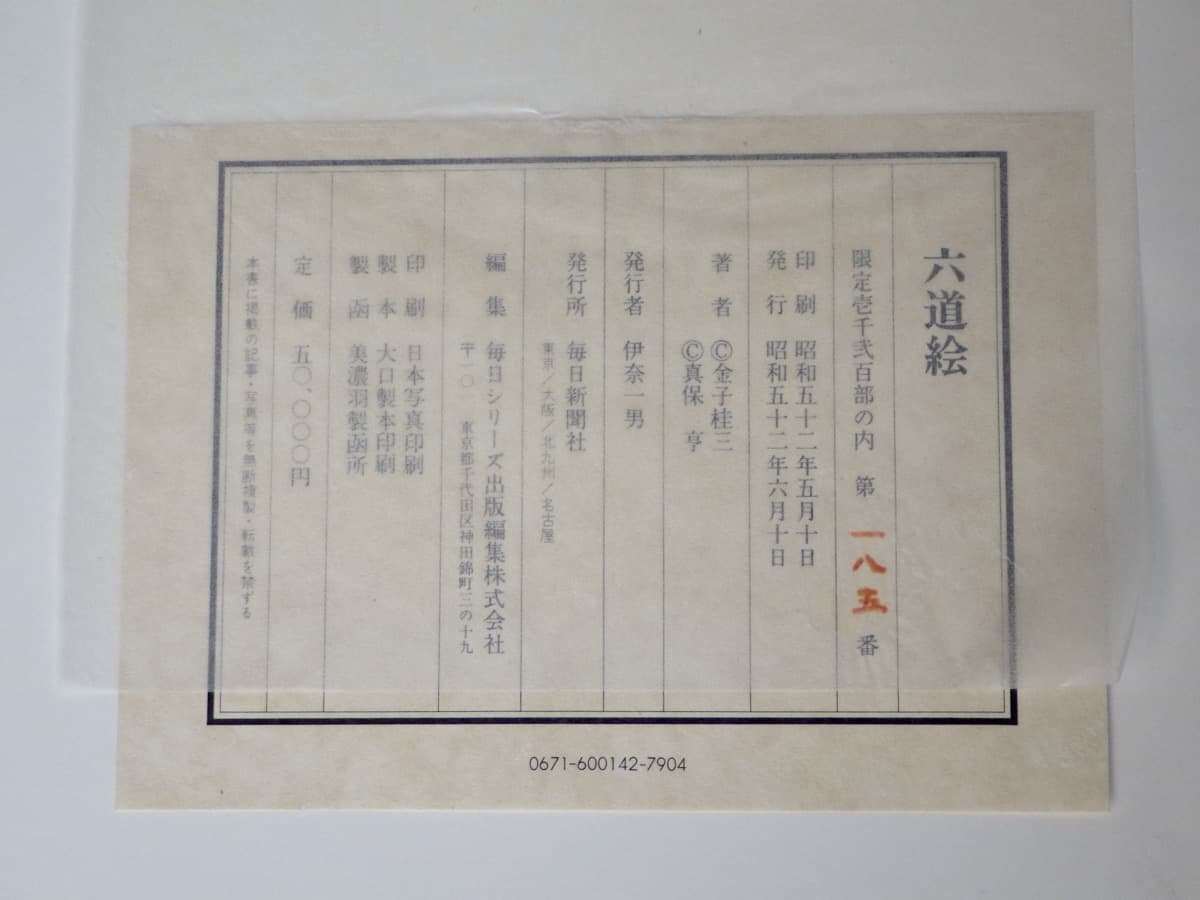 六道絵
限定壱千弐百部の内 第 一八五 番
印刷 昭和五十二年五月十日
発行 昭和五十二年六月十日
著者 ©金子桂三
©真保 亨
発行者 伊奈一男
発行所 毎日新聞社
東京/大阪/北九州/名古屋
編集 毎日シリーズ出版編集株式会社
〒一〇一 東京都千代田区神田錦町三の十九
印刷 日本写真印刷
製本 大口製本印刷
製函 美濃羽製函所
定価 五〇、〇〇〇円
本書に掲載の記事・写真等を無断複製・転載を禁ずる
0671-600142-7904